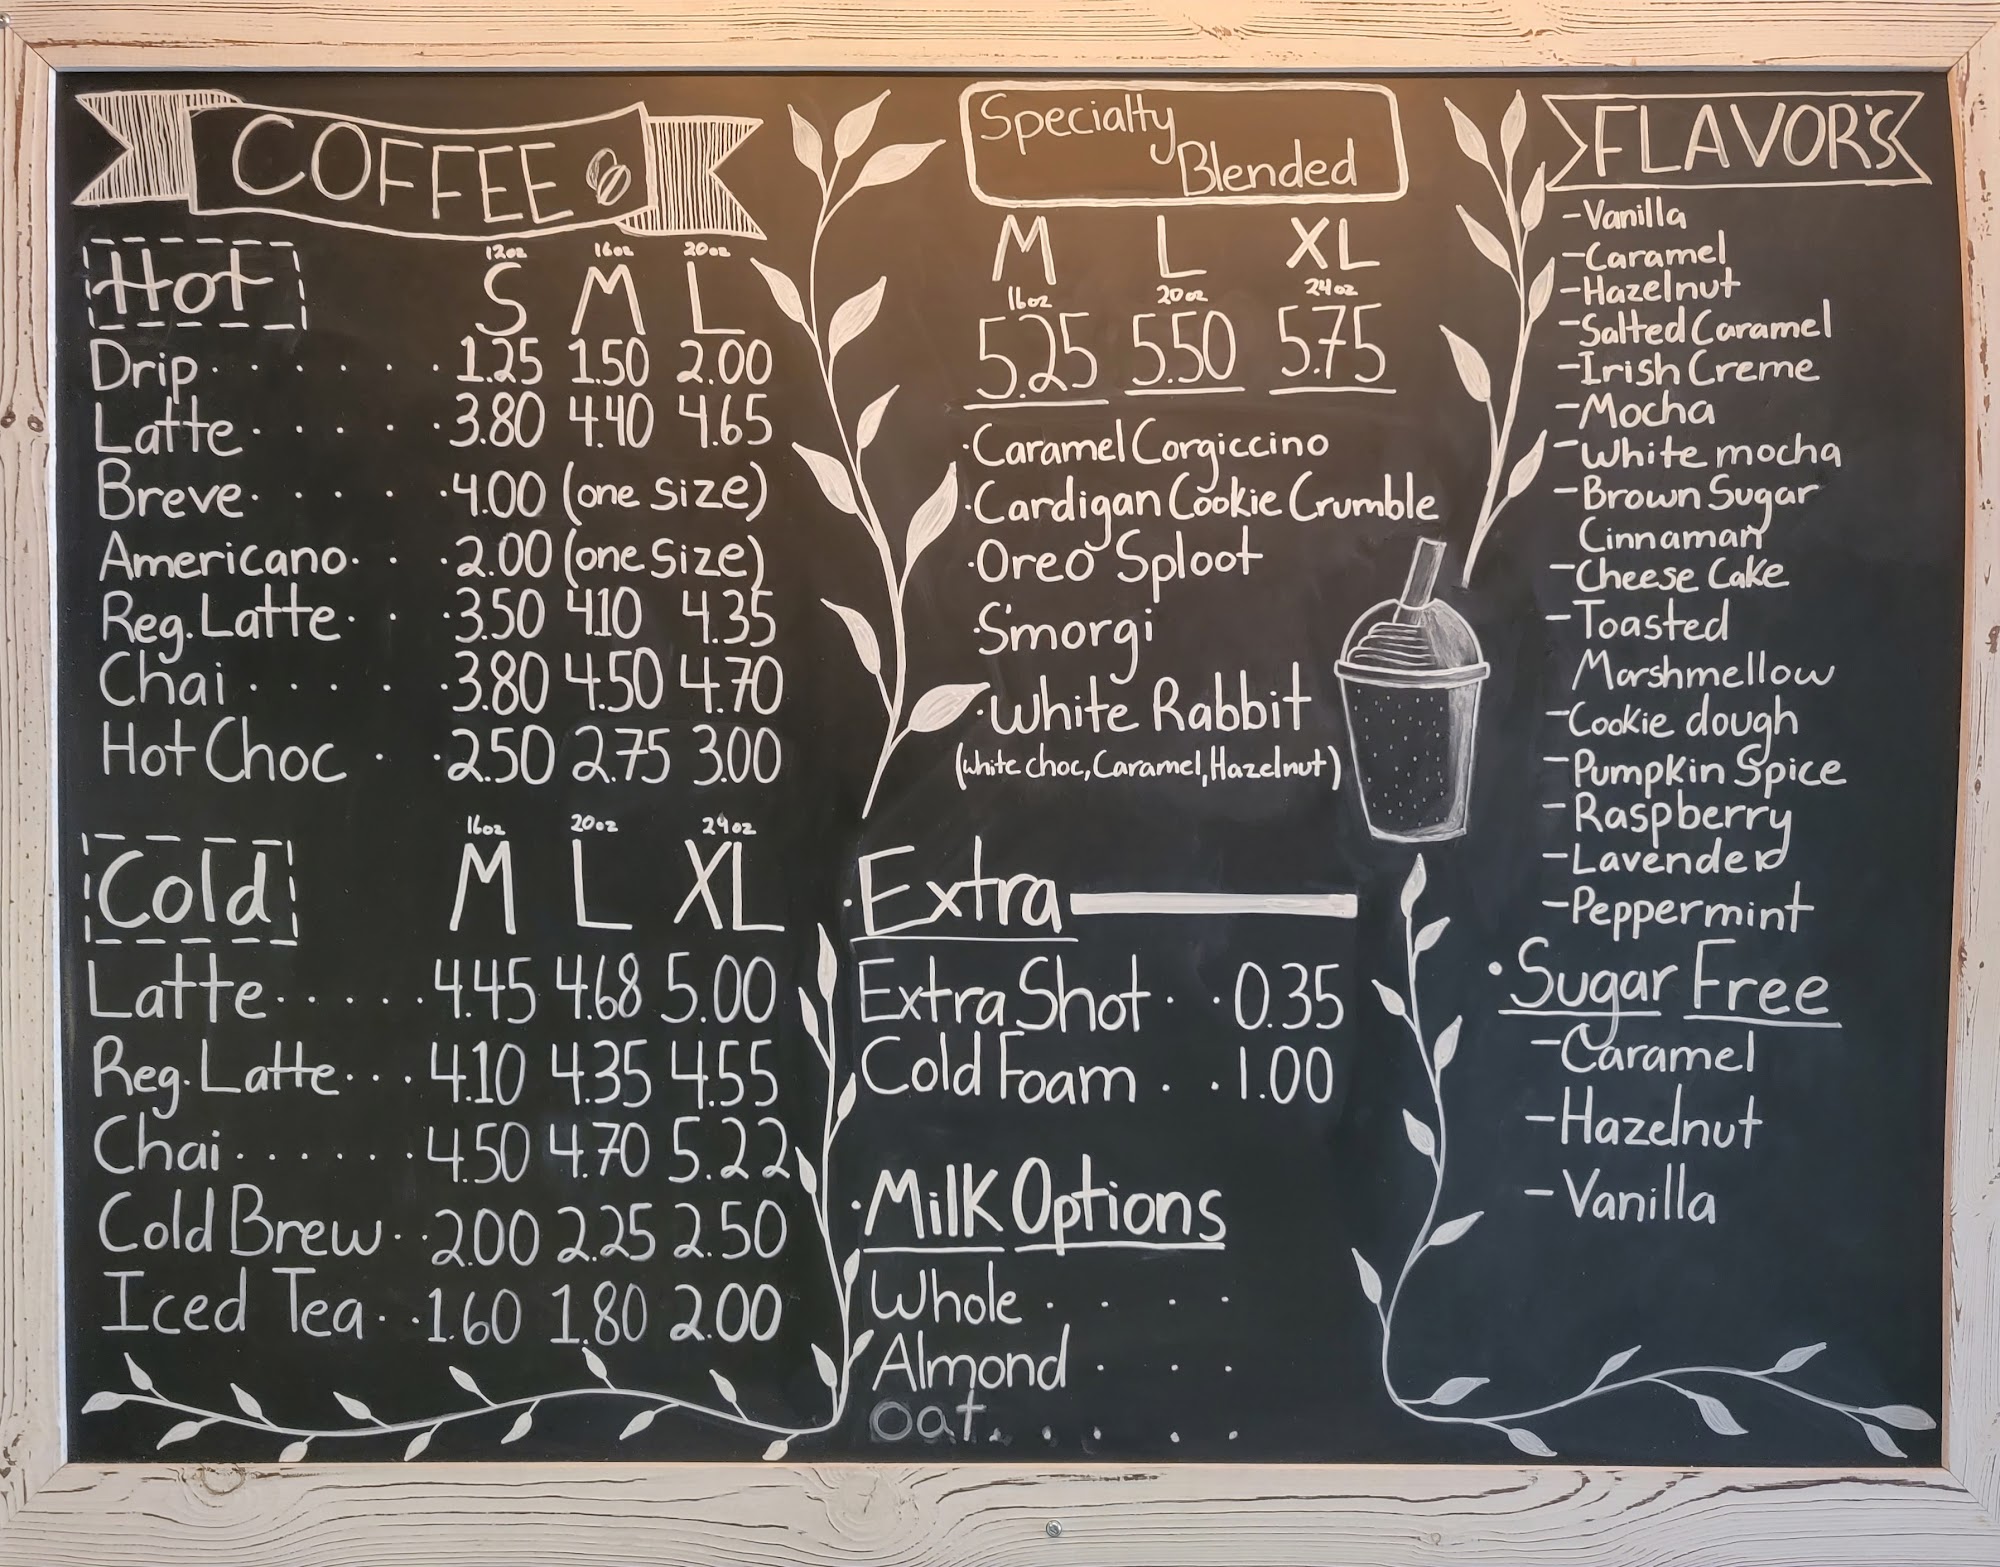 COFFEE
Hot
12oz 16oz 20oz
S M L
Drip . . . . . . . 1.25 1.50 2.00
Latte . . . . . 3.80 4.40 4.65
Breve . . . . . 4.00 (one size)
Americano . . . 2.00 (one size)
Reg. Latte . . . 3.50 4.10 4.35
Chai . . . . . 3.80 4.50 4.70
Hot Choc . . 2.50 2.75 3.00
Cold
16oz 20oz 24oz
M L XL
Latte . . . . . . 4.45 4.68 5.00
Reg. Latte . . . 4.10 4.35 4.55
Chai . . . . . . . 4.50 4.70 5.22
Cold Brew . . 2.00 2.25 2.50
Iced Tea . . 1.60 1.80 2.00
Specialty
Blended
M L XL
16oz 20oz 24oz
5.25 5.50 5.75
·Caramel Corgiccino
·Cardigan Cookie Crumble
·Oreo Sploot
·S'morgi
·White Rabbit
(white choc, Caramel, Hazelnut)
·Extra
Extra Shot . . 0.35
Cold Foam . . 1.00
·Milk Options
Whole . . . .
Almond . . .
oat . . . . .
FLAVOR'S
-Vanilla
-Caramel
-Hazelnut
-Salted Caramel
-Irish Creme
-Mocha
-White mocha
-Brown Sugar
Cinnaman
-Cheese Cake
-Toasted
Marshmellow
-Cookie dough
-Pumpkin Spice
-Raspberry
-Lavender
-Peppermint
·Sugar Free
-Caramel
-Hazelnut
-Vanilla